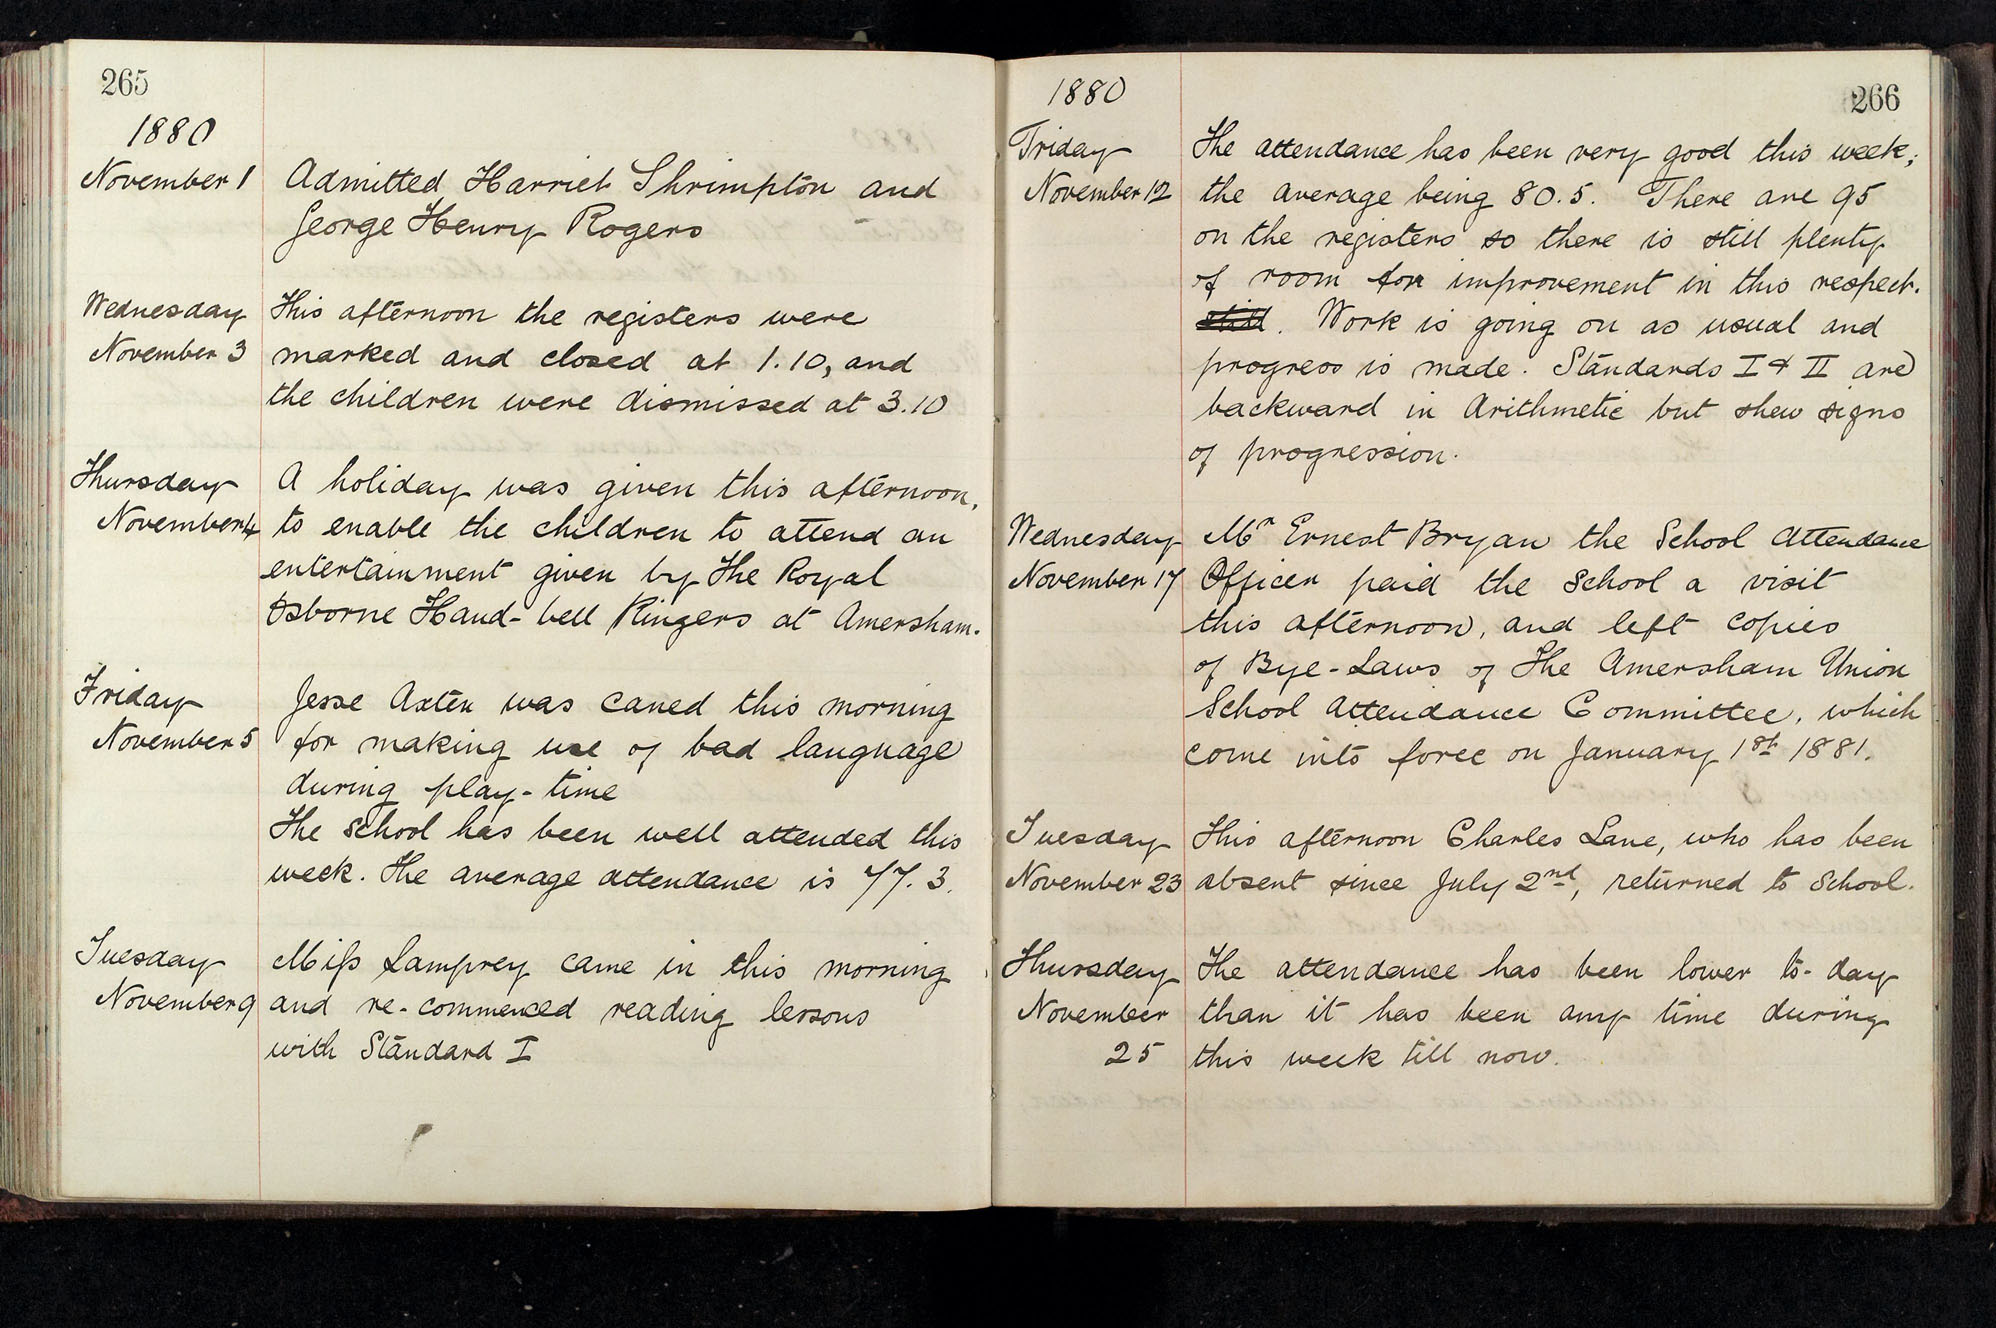 265
1880
November 1 Admitted Harriet Shrimpton and
George Henry Rogers
Wednesday This afternoon the registers were
November 3 marked and closed at 1.10, and
the children were dismissed at 3.10
Thursday A holiday was given this afternoon,
November 4 to enable the children to attend an
entertainment given by The Royal
Osborne Hand-bell Ringers at Amersham.
Friday Jesse Axten was caned this morning
November 5 for making use of bad language
during play-time
The school has been well attended this
week. The average attendance is 77.3.
Tuesday Miss Lamprey came in this morning
November 9 and re-commenced reading lessons
with Standard I
1880
266
Friday The attendance has been very good this week;
November 12 the average being 80.5. There are 95
on the registers so there is still plenty
of room for improvement in this respect.
still. Work is going on as usual and
progress is made. Standards I & II are
backward in Arithmetic but shew signs
of progression.
Wednesday Mr Ernest Bryan the School Attendance
November 17 Officer paid the school a visit
this afternoon, and left copies
of Bye-Laws of The Amersham Union
School Attendance Committee, which
come into force on January 1st 1881.
Tuesday This afternoon Charles Lane, who has been
November 23 absent since July 2nd, returned to School.
Thursday The attendance has been lower to-day
November than it has been any time during
25 this week till now.